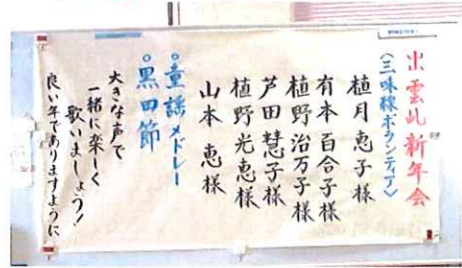 出雲北新年会
〈三味線ボランティア〉
植月恵子様
有本百合子様
植野治万子様
芦田慧子様
植野光恵様
山本恵様
○童謡メドレー
○黒田節
大きな声で
一緒に楽しく
歌いましょう!
良い年でありますように